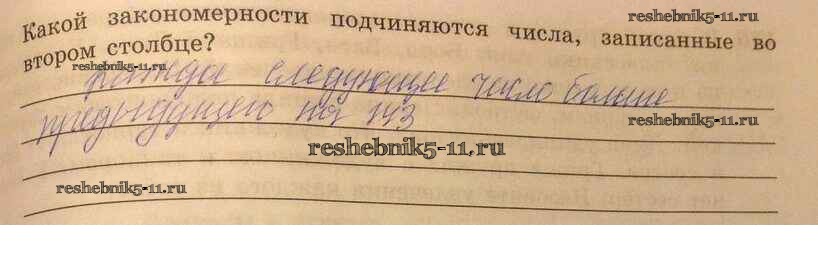 Какой закономерности подчиняются числа, записанные во
reshebnik5-11.ru
втором столбце?
reshebnik5-11.ru
каждое следующее число больше
предыдущего на 143
reshebnik5-11.ru
reshebnik5-11.ru
reshebnik5-11.ru